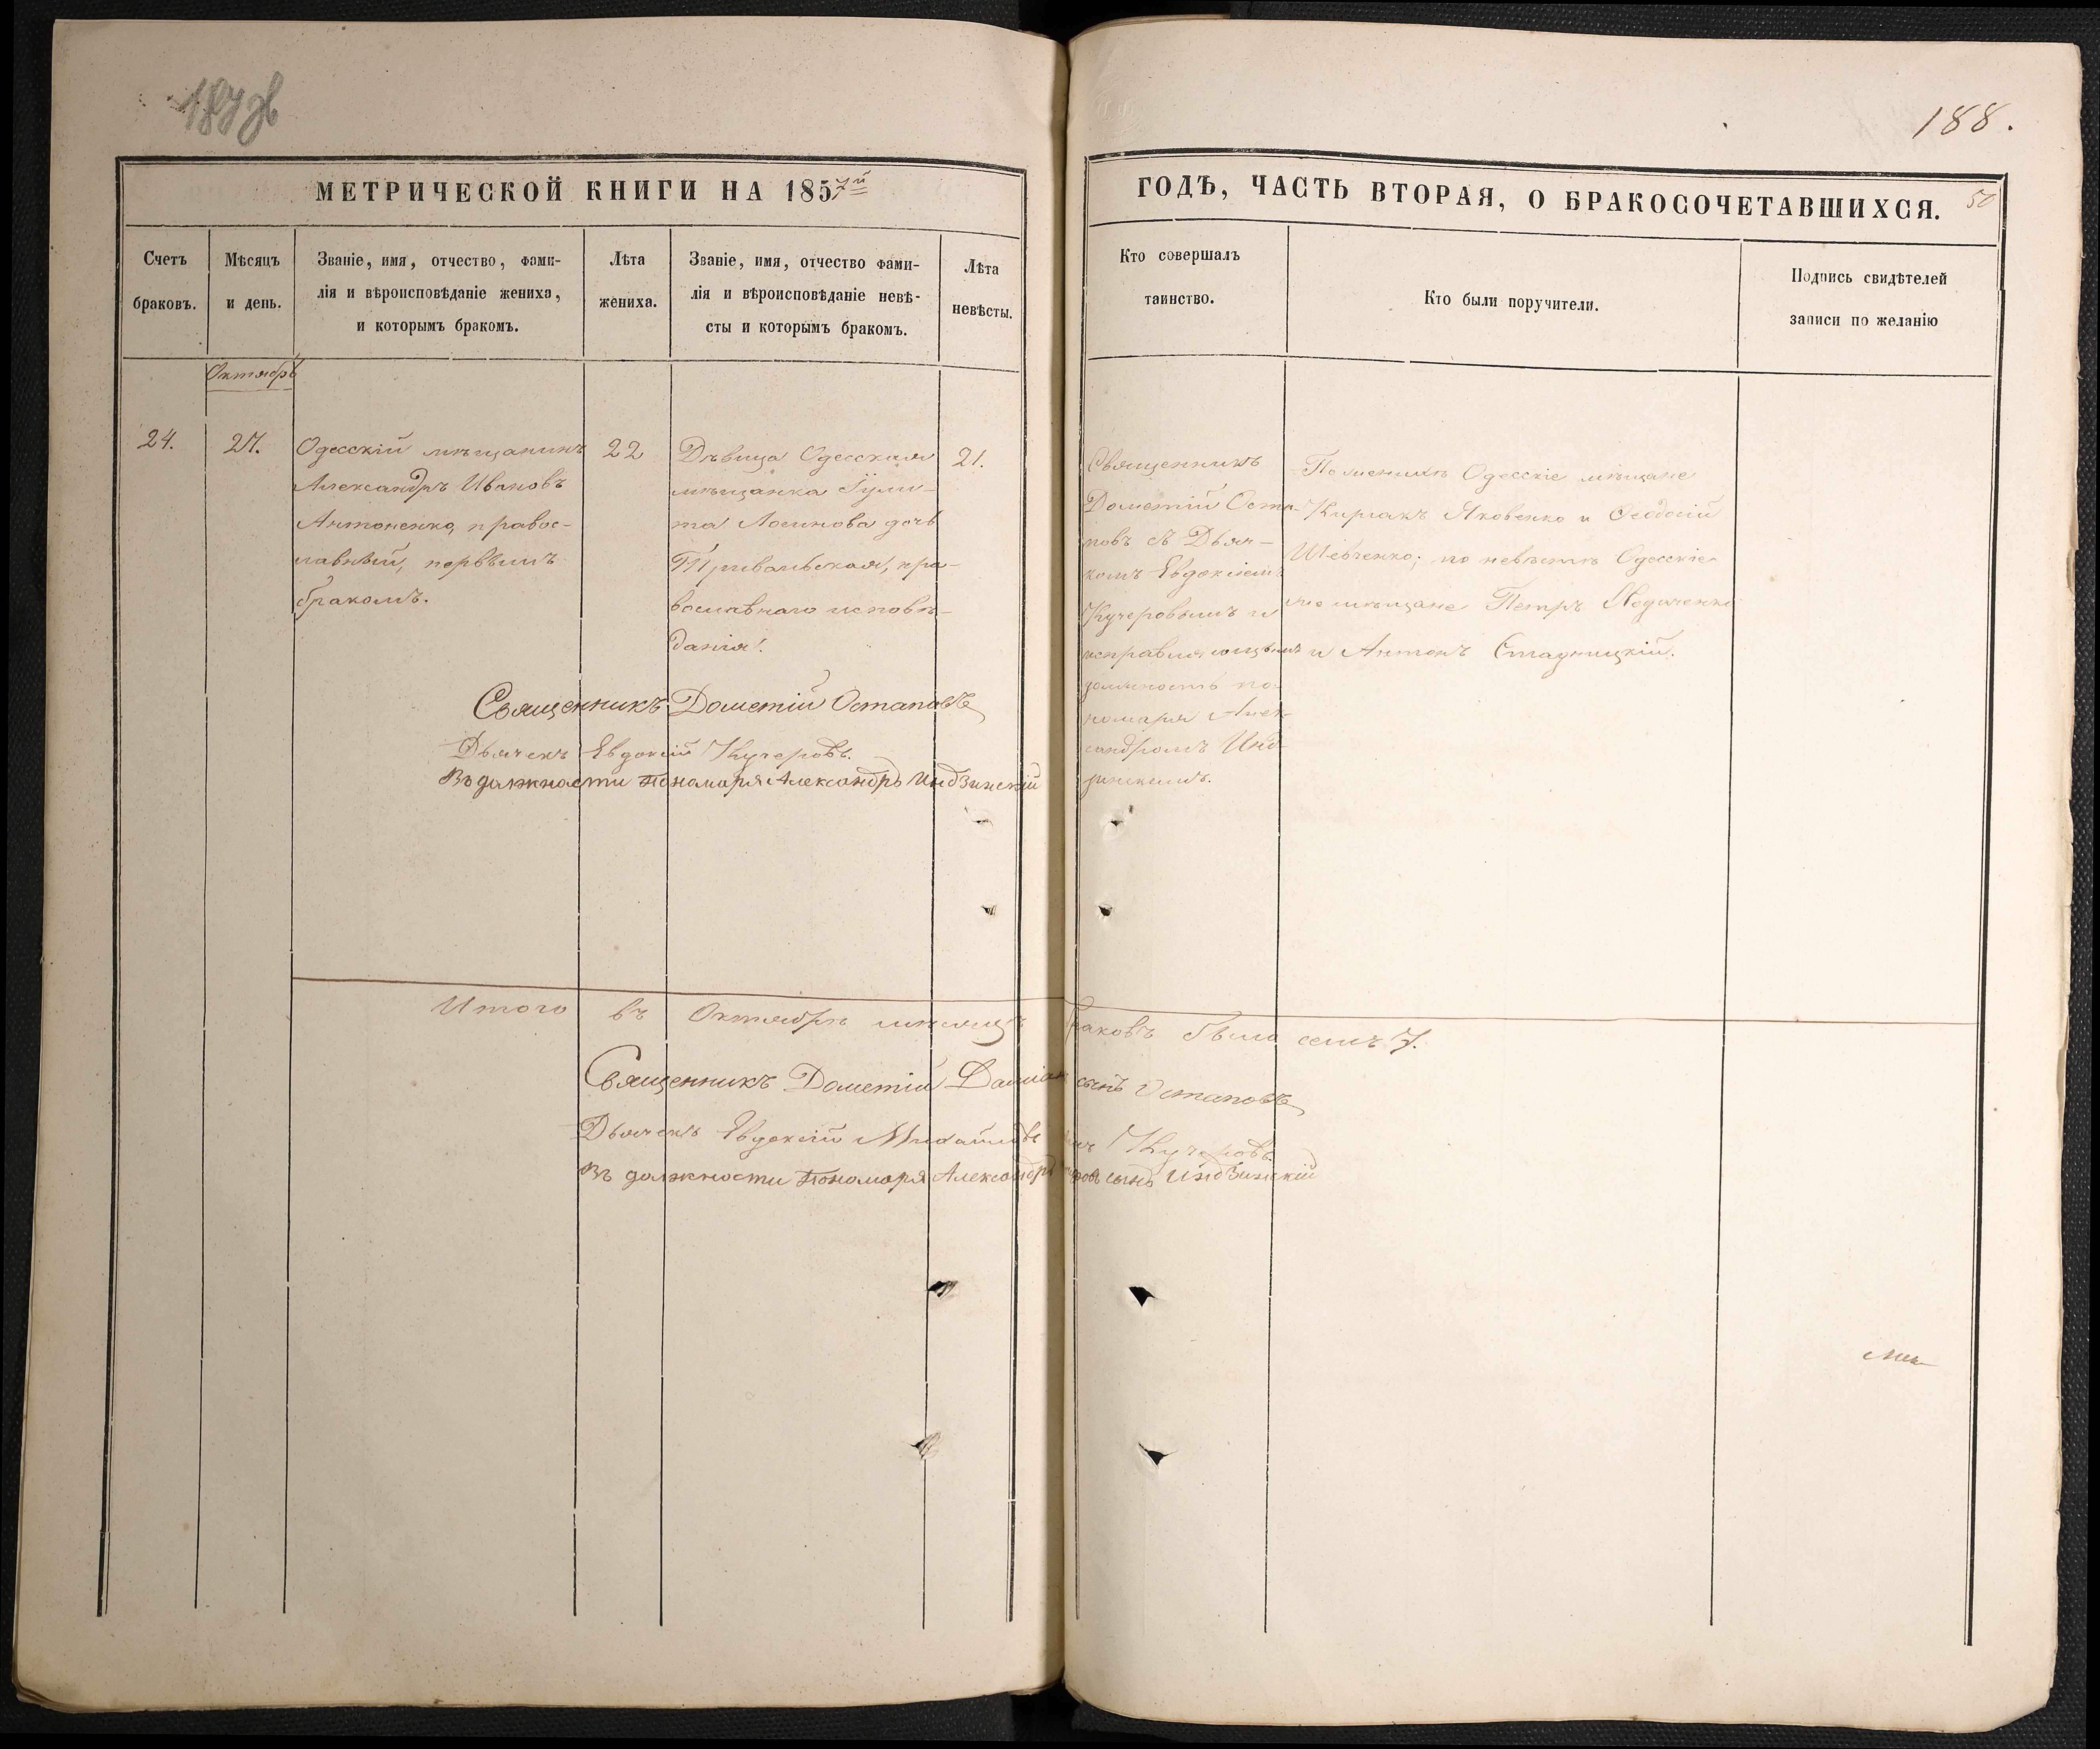 187 об
188.
МЕТРИЧЕСКОЙ КНИГИ НА 1857й
ГОДЪ, ЧАСТЬ ВТОРАЯ, О БРАКОСОЧЕТАВШИХСЯ.
50
Счетъ
браковъ.
Мѣсяцъ
и день.
Званіе, имя, отчество, фами-
лія и вѣроисповѣданіе жениха,
и которымъ бракомъ.
Лѣта
жениха.
Званіе, имя, отчество фами-
лія и вѣроисповѣданіе невѣ-
сты и которымъ бракомъ.
Лѣта
невѣсты.
Кто совершалъ
таинство.
Кто были поручители.
Подпись свидѣтелей
записи по желанію
Октябрь
24.
27.
Одесскій мѣщанинъ
Александръ Ивановъ
Антоненко, правос-
лавный, первымъ
бракомъ.
22
Дѣвица Одесская
мѣщанка Iули-
та дочь
вославнаго исповѣ-
данія.
21.
Священникъ
Дометій Оста-
повъ съ Дьяч-
комъ Евдокіемъ
Кучеровымъ и
исправляющимъ
должность по-
номаря Алек-
сандромъ Инд-
зинскимъ.
По женихѣ Одесскіе мѣщане
Киріакъ Яковенко и Ѳеодосій
Шевченко; по невѣстѣ Одесскіе
мѣщане Петръ
и Антонъ Стадницкій.
Священникъ Дометій Остаповъ
Дьячекъ Евдокій Кучеровъ.
Въ должности Пономаря Александръ Индзинскій
Итого въ Октябрѣ мѣсяцѣ браковъ было семь 7.
Священникъ Дометій Даміан сынъ Остаповъ
Дьячекъ Евдокій Михайловъ Кучеровъ.
Въ должности Пономаря Александръ сынъ Индзинскій